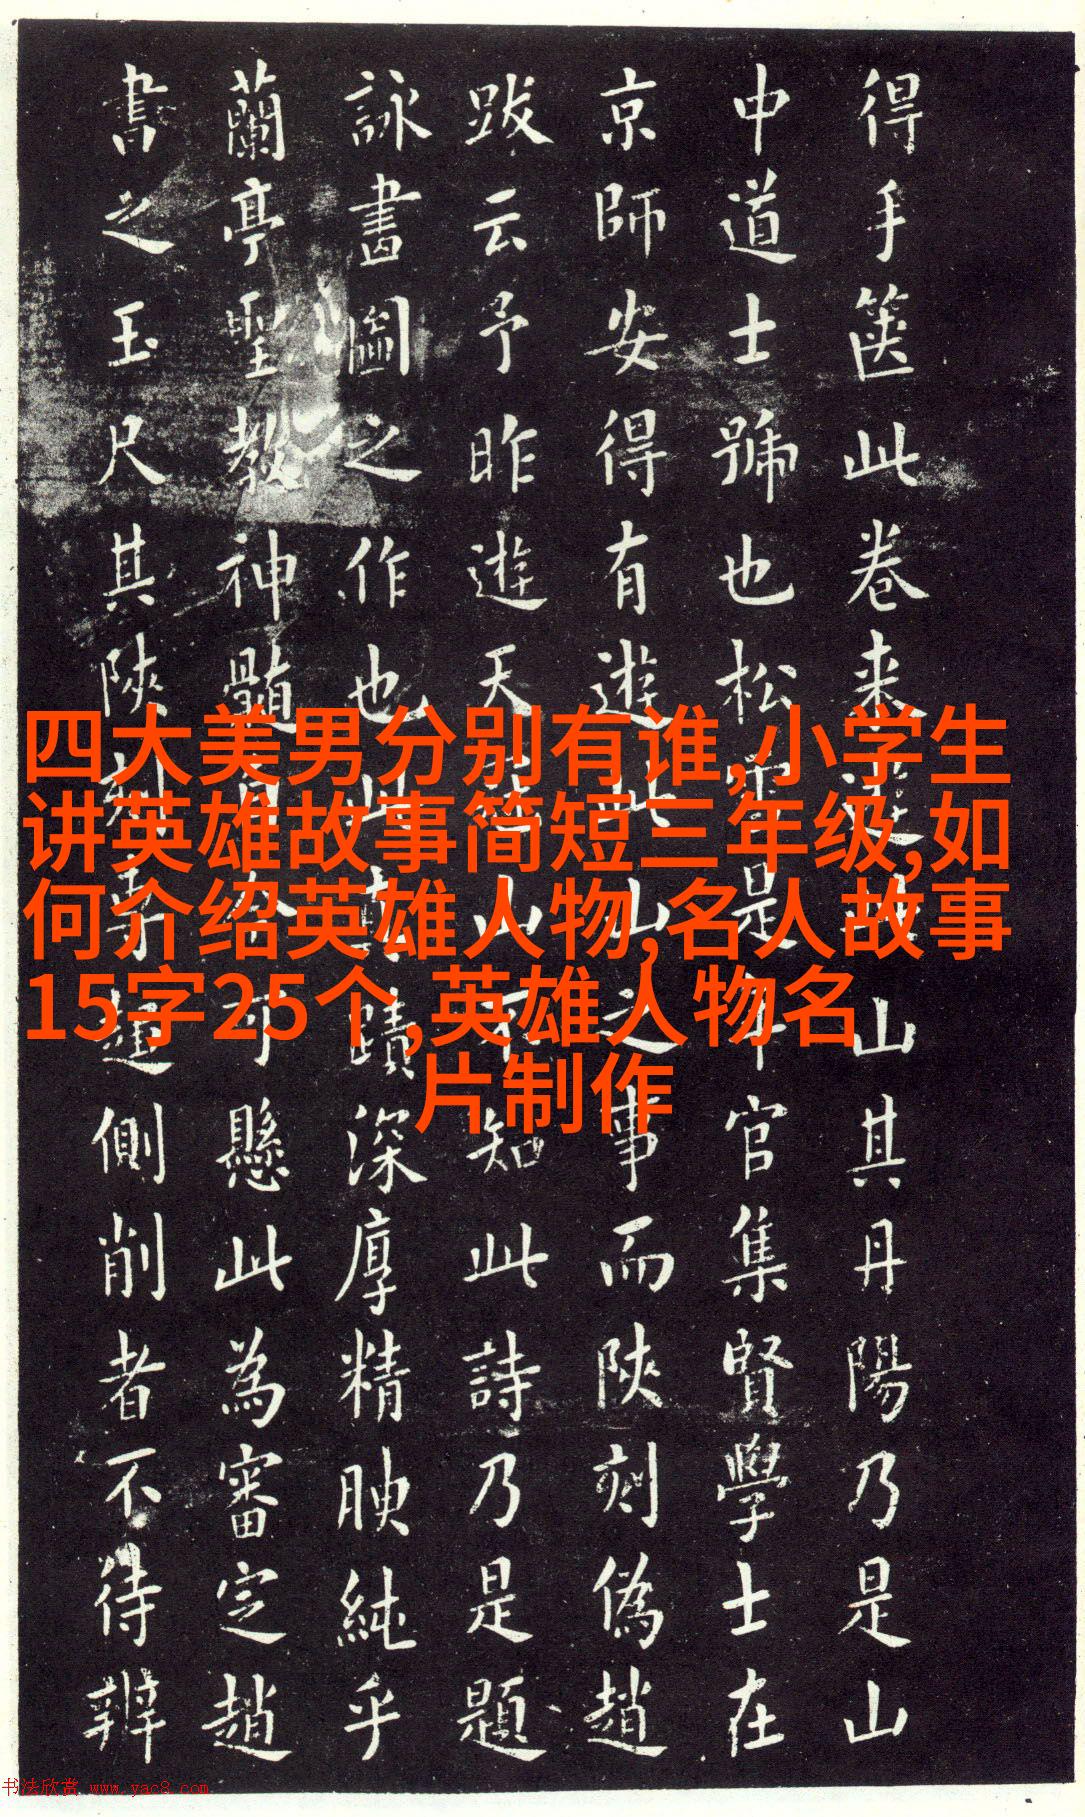 得手篋此卷来山其丹陽乃是山
中道士號也松雪是年官集賢學士在
京師安得有遊此山之事而陝刻偽趙
跋云予昨遊天山不知此詩乃是題
詠畫圖之作也此蹟深厚精腴純乎
蘭亭聖教神髓可懸此為審定趙
書之玉尺其陝刻運側削者不待辨
四大美男分别有谁,小学生
讲英雄故事简短三年级,如
何介绍英雄人物,名人故事
15字25个,英雄人物名
片制作
书法欣赏 www.yac8.com